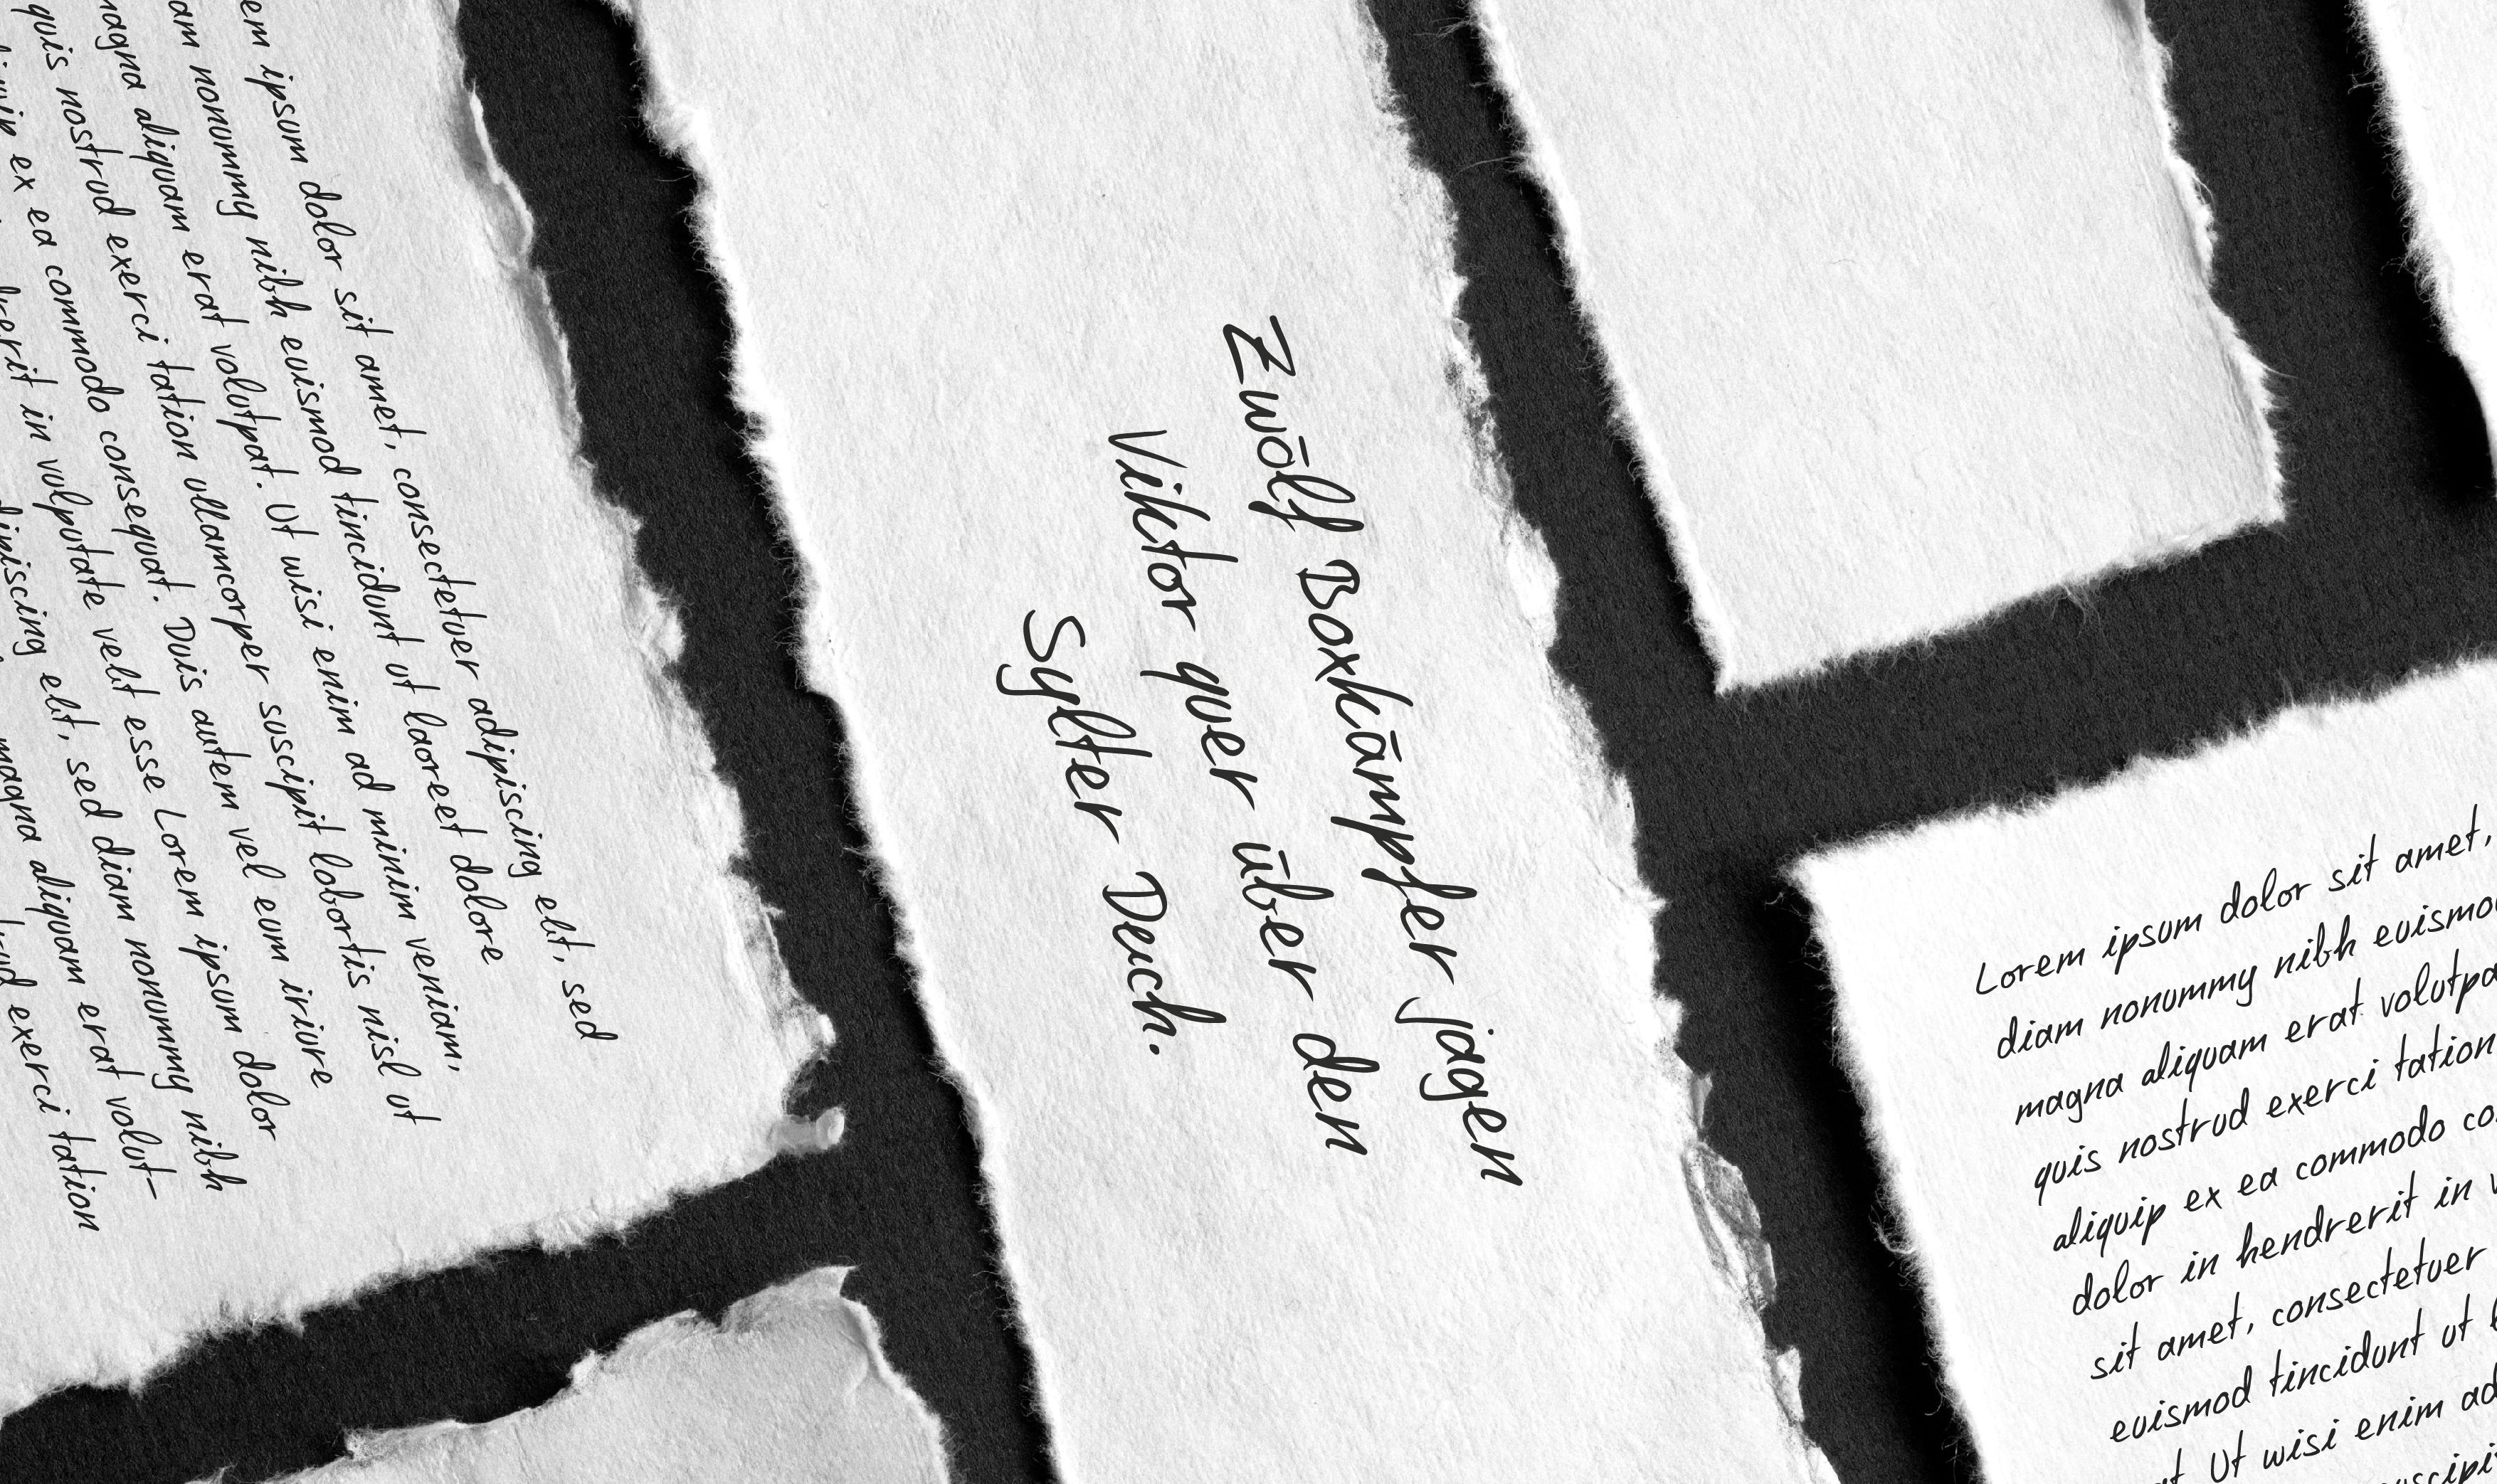 em ipsum dolor sit amet, consectetuer adipiscing elit, sed
am nonummy nibh euismod tincidunt ut laoreet dolore
magna aliquam erat volutpat. Ut wisi enim ad minim veniam,
quis nostrud exerci tation ullamcorper suscipit lobortis nisl ut
ex ea commodo consequat. Duis autem vel eum iriure
in vulputate velit esse Lorem ipsum dolor
elit, sed diam nonummy nibh
magna aliquam erat volut-
exerci tation
Zwōlf Boxkāmpfer jagen
Viktor quer ūber den
Sylter Deuch.
Lorem ipsum dolor sit amet,
diam nonummy nibh euismo
magna aliquam erat volutpa
quis nostrud exerci tation
aliquip ex ea commodo co
dolor in hendrerit in v
sit amet, consectetuer
euismod tincidunt ut
Ut wisi enim ad